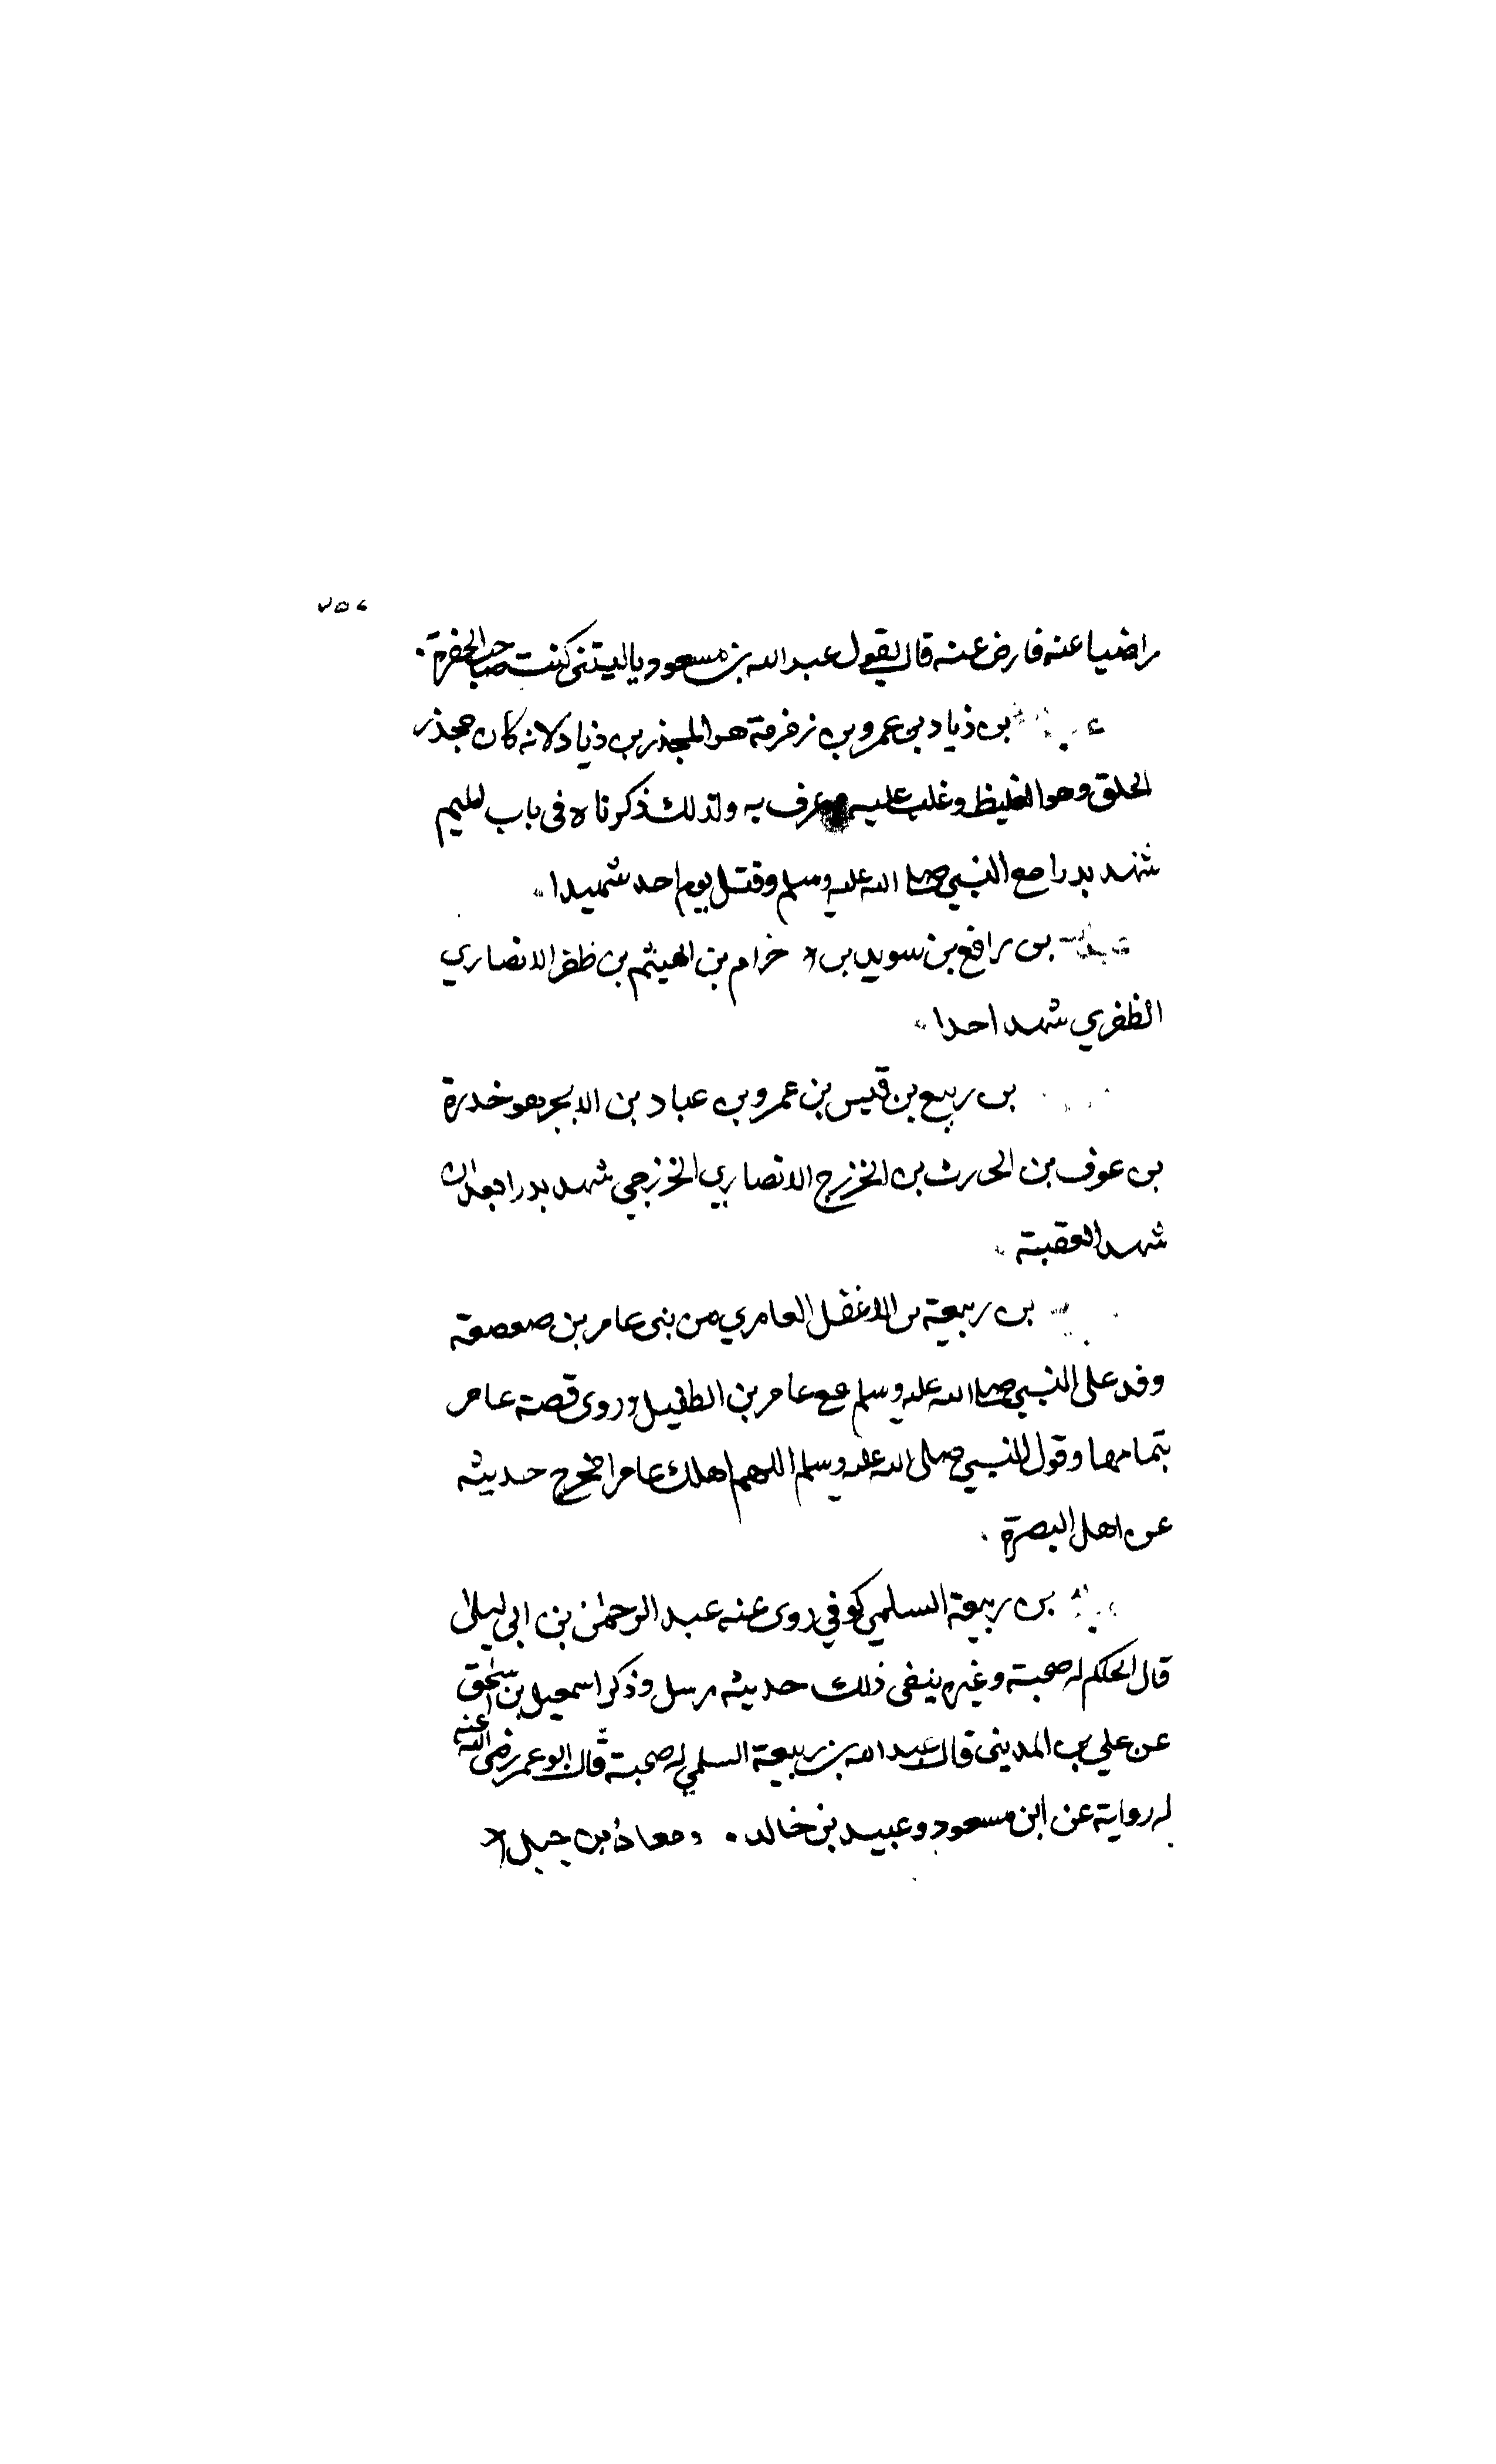 راضيا عنه فارض عنه قال يقول عبد الله بن مسعود ياليتنى كنت صاحب الحفرة .
بن ذياد بن عمرو بن زمزمة هو المجذر بن ذياد لانه كان مجذر
الخلق وهو الغليظ وغلب عليه وعرف به ولذلك ذكرناه فى باب الميم
شهد بدرا مع النبي صلى الله عليه وسلم وقتل يوم احد شهيدا .
عبد الله بن رافع بن سويد بن خرام بن الهيثم بن ظفر الانصاري
الظفري شهد احدا .
بن ربيع بن قيس بن عمرو بن عباد بن الابجر هو خدرة
بن عوف بن الحرث بن الخزرج الانصاري الخزرجي شهد بدرا بعد ان
شهد العقبة .
بن ربيعة بن الاغفل العامري من بنى عامر بن صعصعة
وفد على النبي صلى الله عليه وسلم مع عامر بن الطفيل وروى قصة عامر
بتمامها وقول النبي صلى الله عليه وسلم اللهم اهلك عامرا مخرج حديثه
عن اهل البصرة .
بن ربيعة السلمي كوفي روى عنه عبد الرحمن بن ابى ليلى
قال الحكم له صحبة وغيره ينفى ذلك حديثه مرسل وذكر اسمعيل بن اسحق
عن علي بن المدينى قال عبد الله بن ربيعة السلمي له صحبة قال ابو عمر رضى الله عنه
له رواية عن ابن مسعود وعبيد بن خالد . ومعاذ بن جبل